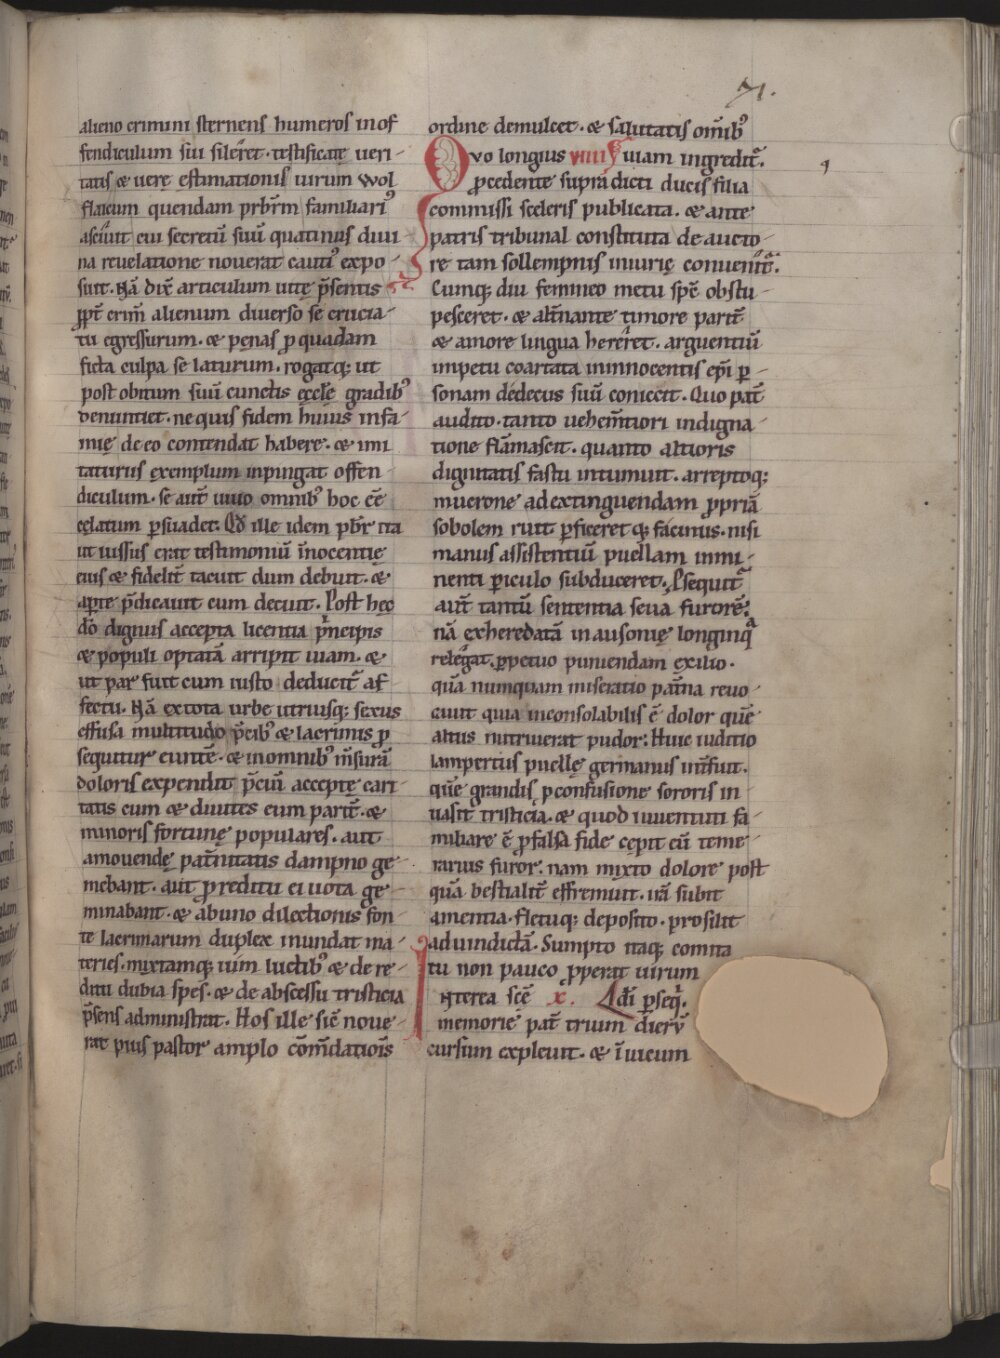 71.
alieno crimini sternens humeros in of
fendiculum sui sileret. testificatę veri-
tatis & verę estimationis uirum wol
flaicum quendam prb̄rm familiari᾿
asciuit cui secretū suū quatinus diui
na reuelatione nouerat caut᾿ expo-
suit. Nā dix̄ articulum uitę p̄sentis
ꝓpt̄ crim̄ alienum diuerso se crucia-
tu egressurum. & pęnas ꝓ quadam
ficta culpa se laturum. rogatq; ut
post obitum suū cunctis ęcclę gradib᾿
denuntiet. ne quis fidem huius infa-
mię de eo contendat habere. & imi
taturus exemplum inpingat offen-
diculum. se aut̄ uiuo omnib᾿ hoc ēē
cęlatum ꝑsuadet. Qd̄ ille idem pb̄r ita
ut iussus erat testimoniū īnocentię
eius & fidelit̄ tacuit dum debuit. &
aꝑte p̄dicauit cum decuit. Post hęc
dō dignus accepta licentia p̄ncipis
& populi optatā arripit uiam. &
ut par fuit cum iusto deducit̄ af
fectu. Nā ex tota urbe utriusq; sexus
effusa multitudo p̄cib᾿ & lacrimis ꝓ
sequitur euntē. & in omnib᾿ m̄surā
doloris expendit p̄ciū acceptę cari-
tatis cum & diuites eum part̄. &
minoris fortunę populares. aut
amouendę pat̄nitatis dampno ge-
mebant. aut ꝓ reditu ei uota ge-
minabant. & ab uno dilectionis fon-
te lacrimarum duplex inundat ma-
teries. mixtamq; uim luctib᾿ & de re-
ditu dubia spes. & de abscessu tristicia
p̄sens administrat. Hos ille siē noue-
rat pius pastor amplo cōm̄dationis
ordine demulcet. & salutatis omīb᾿
Quo longius viiii uiam ingredit̄.
ꝓcedente supra dicti ducis filia
commissi sceleris publicata. & ante
patris tribunal constituta de aucto-
re tam sollempnis iniurię conuenit̄.
Cumq; diu femineo metu spē obstu-
pesceret. & alt̄nante timore parit̄
& amore lingua hereret. arguentiū
impetu coartata in innocentis ep̄i ꝑ-
sonam dedecus suū coniecit. Quo pat̄
audito. tanto uehem̄tiori indigna-
tione flāmascit. quanto altioris
dignitatis fastu intumuit. arreptoq;
mucrone ad extinguendam ꝓpriā
sobolem ruit ꝑficeret q; facinus. nisi
manus assistentiū puellam inmi-
nenti ꝑiculo subduceret. Psequit̄
aut̄ tantū sententia seua furorē.
nā exheredatā in ausonię longinq̄
relegat. ꝑpetuo puniendam exilio.
quā numquam miseratio pat̄na reuo-
cauit quia inconsolabilis ē dolor quē
altius nutriuerat pudor. Huic iuditio
lampertus puellę germanus int̄fuit.
quē grandis ꝓ confusione sororis in-
uasit tristicia. & quod iuuentuti fa-
miliare ē ꝓ falsa fide cepit eū teme-
rarius furor. nam mixto dolore post
quā bestialit̄ effremuit. uā subit
amentia. fletuq; deposito. prosilit
ad uindictā. Sumpto itaq; comita
tu non pauco ꝓperat uirum
Interea scē x. dī ꝑseq̄.
memorie pat̄ trium dierū
cursum expleuit. & ī uicum